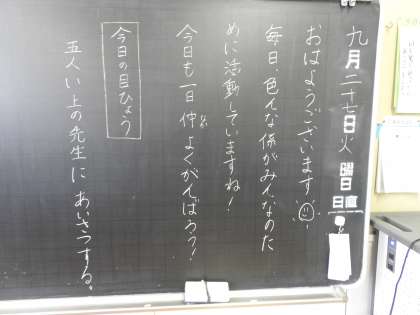 九月二十七日火曜日
日直
おはようございます
毎日、色んな係がみんなのた
めに活動していますね!
今日も一日仲よくがんばろう!
今日の目ひょう
五人い上の先生にあいさつする。